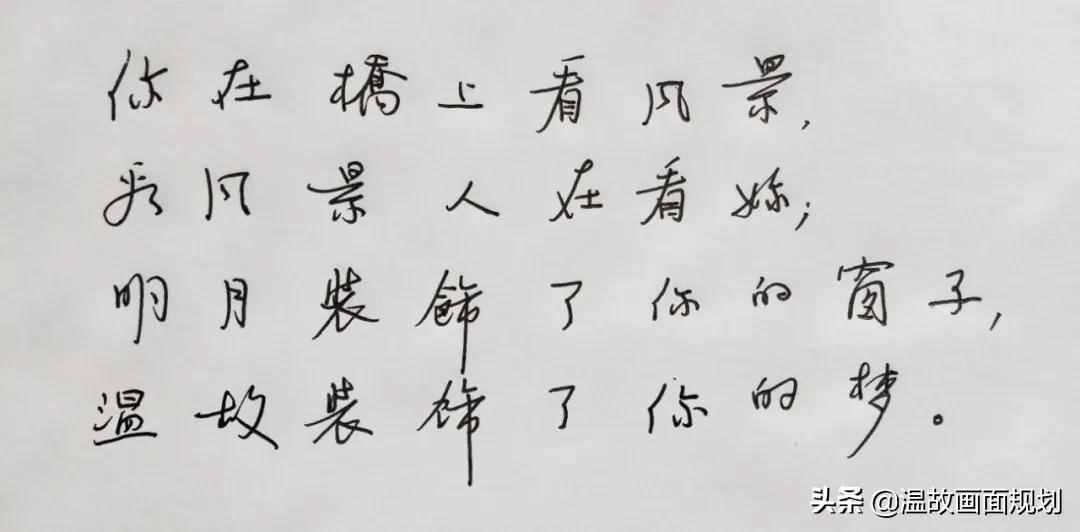 你在橋上看风景,
看风景人在看妳;
明月装飾了你的窗子,
温故装饰了你的梦。
头条 @温故画面规划